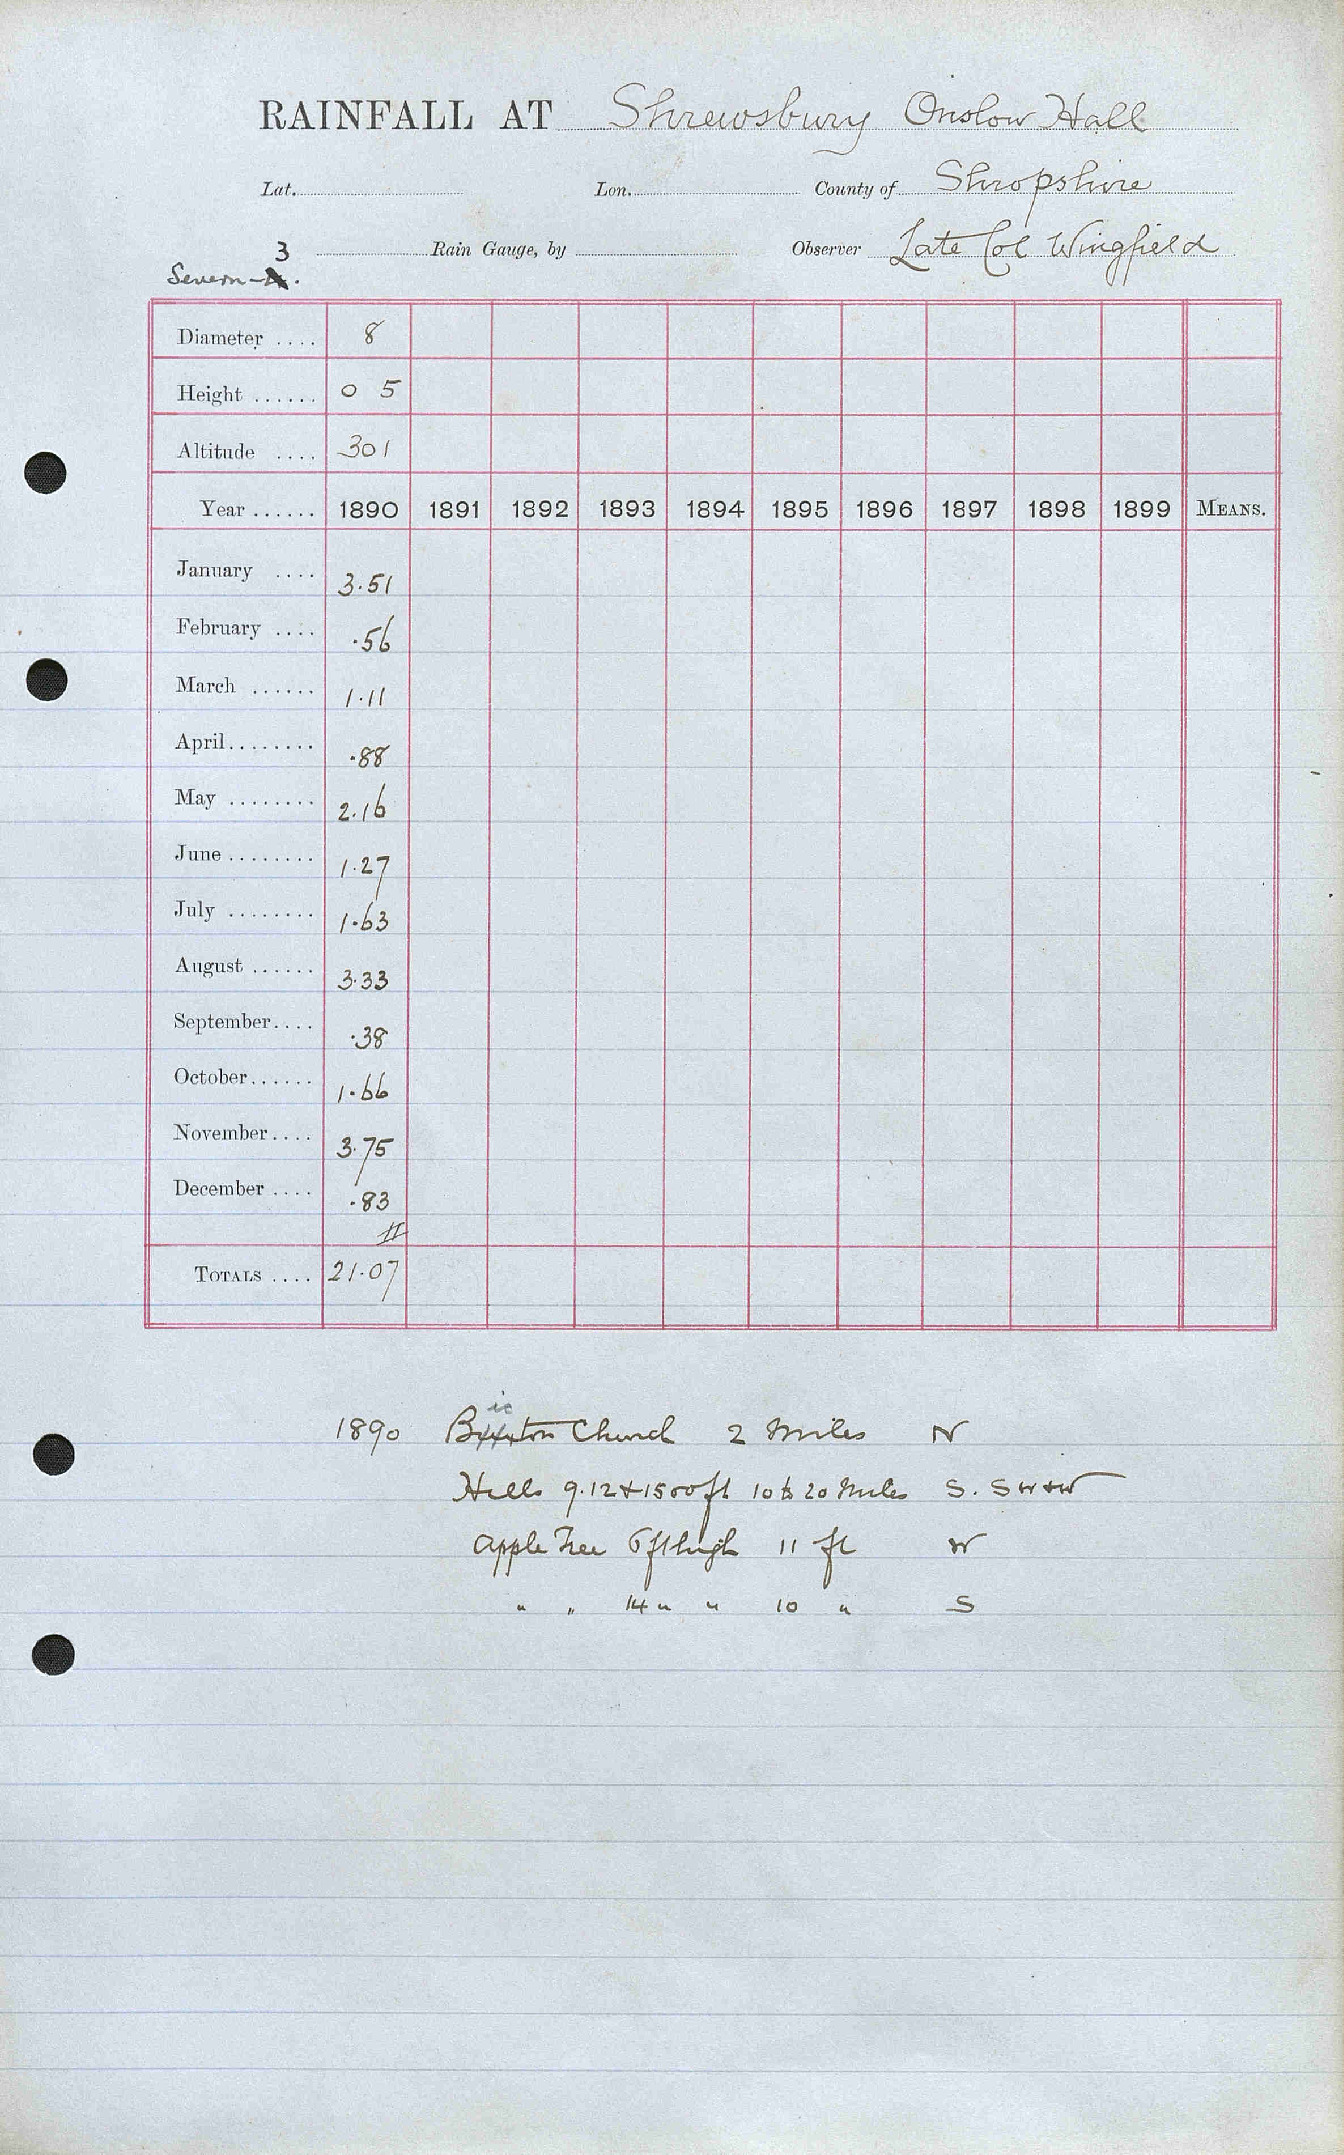 RAINFALL AT Shrewsbury Onslow Hall
Lat. Lon. County of Shropshire
3 Rain Gauge, by Observer Late Col Wingfield
Severn-
Diameter .... 8
Height ...... 0 5
Altitude .... 301
Year ...... 1890 1891 1892 1893 1894 1895 1896 1897 1898 1899 MEANS.
January .... 3.51
February .... .56
March ...... 1.11
April ........ .88
May ........ 2.16
June ........ 1.27
July ........ 1.63
August ...... 3.33
September .... .38
October ...... 1.66
November .... 3.75
December .... .83
TOTALS .... 21.07
1890 Bicton Church 2 Miles N
Hills 9.12 & 1500 ft 10 to 20 Miles S. SW & W
Apple Tree 6 ft high 11 ft W
" " 14 " " 10 " S